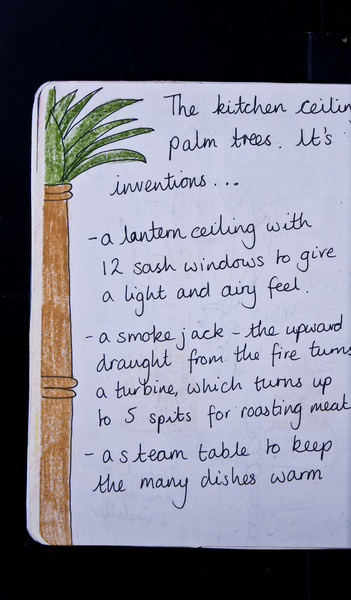 The kitchen ceilin
palm trees. It's
inventions...
- a lantern ceiling with
12 sash windows to give
a light and airy feel.
- a smoke jack - the upward
draught from the fire turns
a turbine, which turns up
to 5 spits for roasting meat
- a steam table to keep
the many dishes warm